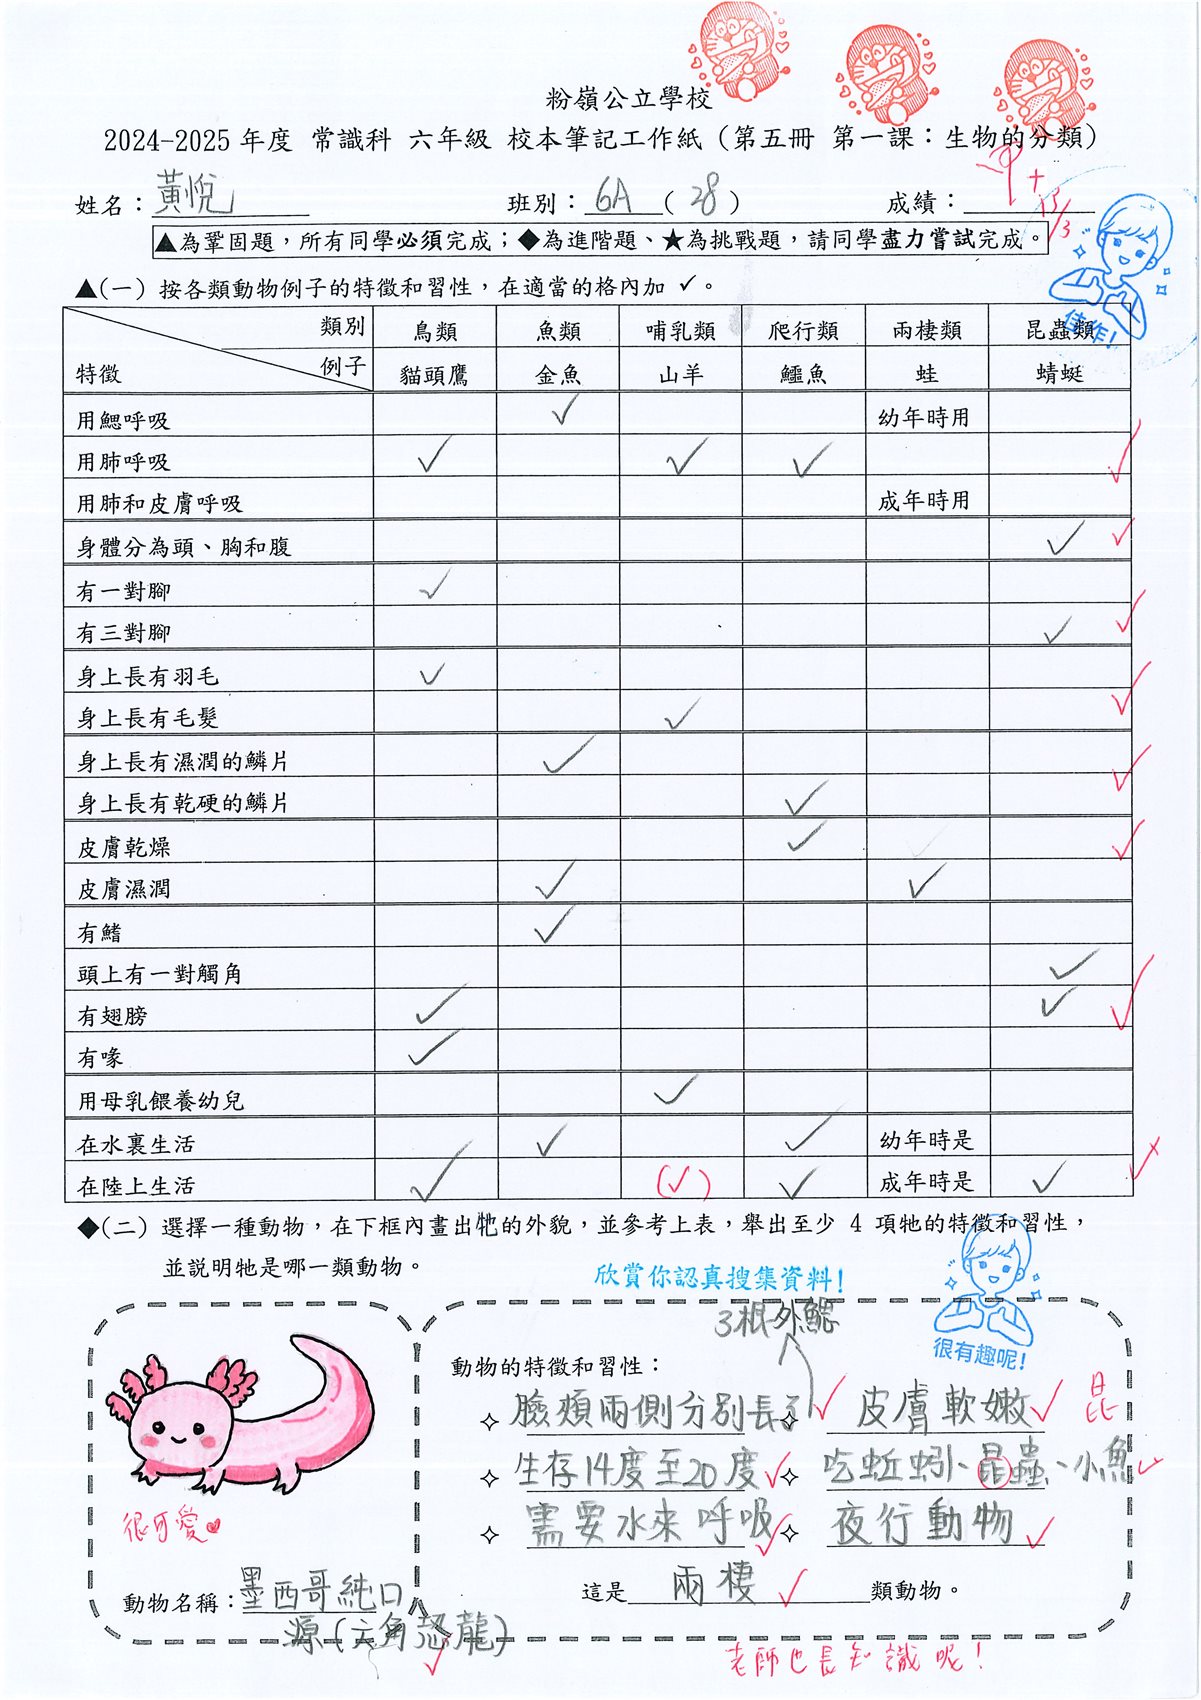 粉嶺公立學校
2024-2025 年度 常識科 六年級 校本筆記工作紙 (第五冊 第一課：生物的分類)
姓名：黃悅 班別：6A (28) 成績：
▲為鞏固題，所有同學必須完成；◆為進階題、★為挑戰題，請同學盡力嘗試完成。
佳作！
▲(一) 按各類動物例子的特徵和習性，在適當的格內加 ✓。
類別 鳥類 魚類 哺乳類 爬行類 兩棲類 昆蟲類
特徵 例子 貓頭鷹 金魚 山羊 鱷魚 蛙 蜻蜓
用鰓呼吸 ✓ 幼年時用
用肺呼吸 ✓ ✓ ✓
用肺和皮膚呼吸 成年時用
身體分為頭、胸和腹 ✓
有一對腳 ✓
有三對腳 ✓
身上長有羽毛 ✓
身上長有毛髮 ✓
身上長有濕潤的鱗片 ✓
身上長有乾硬的鱗片 ✓
皮膚乾燥 ✓
皮膚濕潤 ✓ ✓
有鰭 ✓
頭上有一對觸角 ✓
有翅膀 ✓ ✓
有喙 ✓
用母乳餵養幼兒 ✓
在水裏生活 ✓ ✓ 幼年時是
在陸上生活 ✓ (✓) ✓ 成年時是 ✓
◆(二) 選擇一種動物，在下框內畫出牠的外貌，並參考上表，舉出至少 4 項牠的特徵和習性，
並說明牠是哪一類動物。
欣賞你認真搜集資料！
很有趣呢！
3根外鰓
動物的特徵和習性：
臉頰兩側分別長了 皮膚軟嫩 昆
生存14度至20度 吃蚯蚓、昆蟲、小魚
需要水來呼吸 夜行動物
很可愛
動物名稱：墨西哥純口
源(六角恐龍)
這是 兩棲 類動物。
老師也長知識呢！